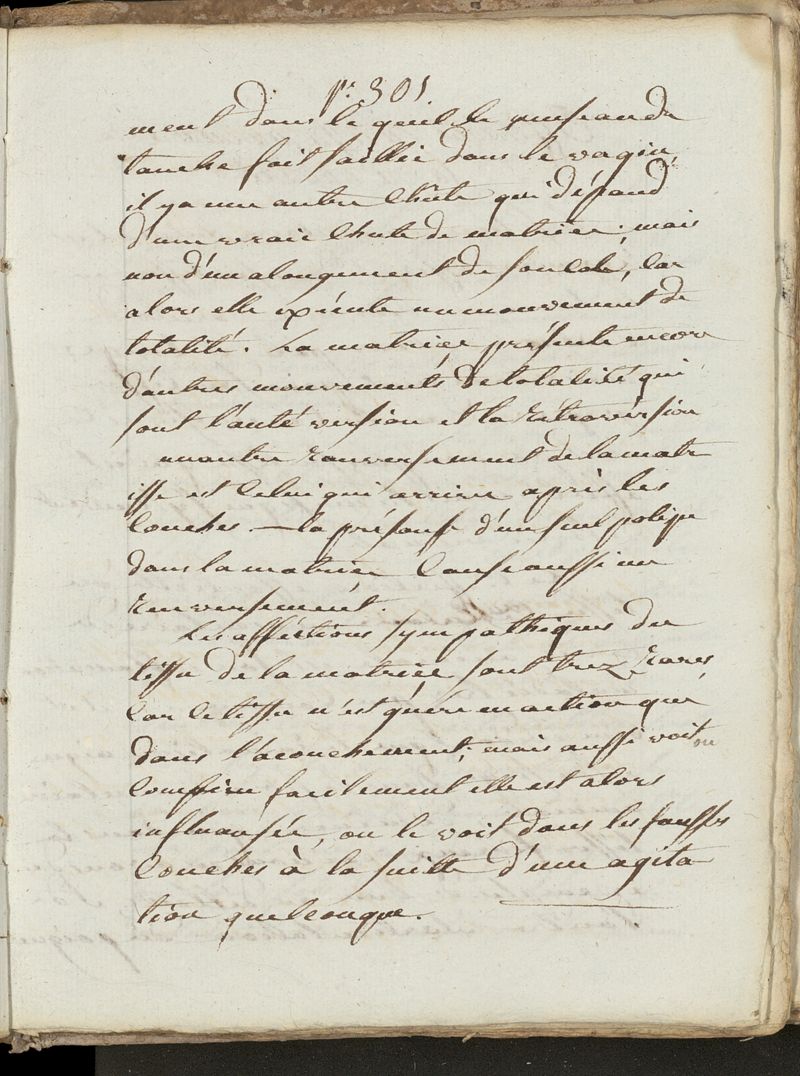 pe 301
ment dans le quel le museau de
tanche fait saillie dans le vagin,
il ya une autre chute qui dépend
d'une vraie chute de matrice, mais
non d'un alongement de son col, car
alors elle exécute un mouvement de
totalité. La matrice présente encore
d'autres mouvements de totalité qui
sont l'anté version et la retroversion
un autre ranversement de la matr
isse est celui qui arrive après les
couches — la présense d'un seul polipe
dans la matrice cause aussi un
renversement.
Les afféctions sympathiques du
tissu de la matrice sont trez rares,
car ce tissu n'est guère en action que
dans l'acouchement; mais aussi voit on
combien facilement elle est alors
influansée, on le voit dans les fausses
couches à la suitte d'une agita
tion quelconque.